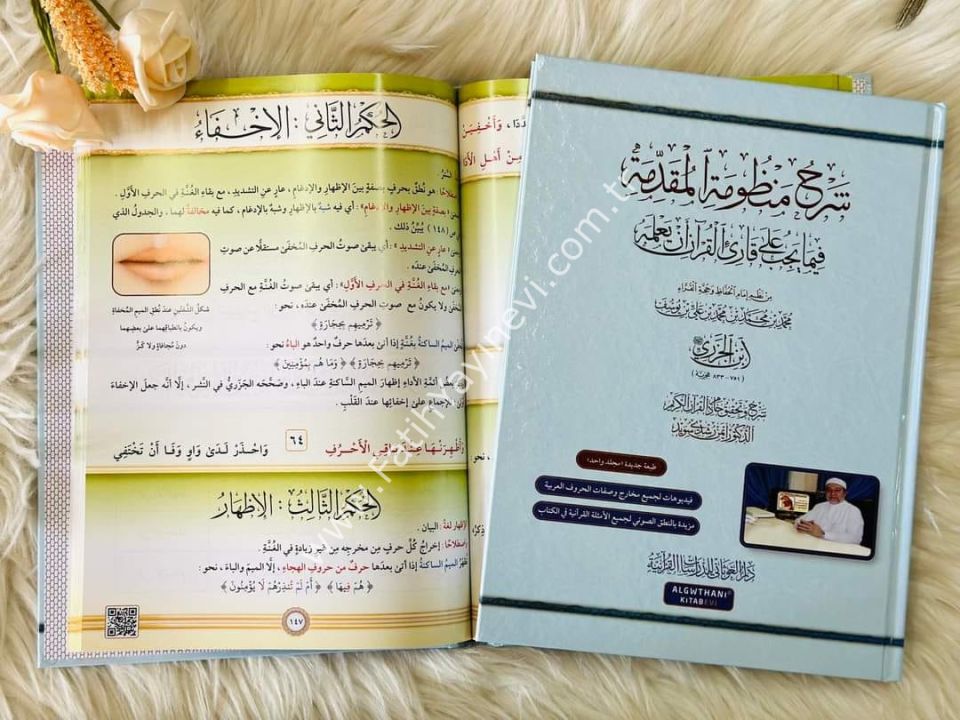 الحكم الثاني : الإخفاء
هو نُطقٌ بحرفٍ بصفةٍ بينَ الإظهارِ والإدغامِ ، عارٍ عنِ التشديدِ ، مع بقاءِ الغُنَّةِ في الحرفِ الأوَّلِ .
بصفةٍ بينَ الإظهارِ والإدغامِ » : أي فيه شبهٌ بالإظهارِ وشبهٌ بالإدغامِ ، كما فيه مخالفةٌ لهما . والجدولُ الذي
ص (١٤٨) يُبيِّنُ ذلك .
عارٍ عنِ التشديدِ » : أي يبقى صوتُ الحرفِ المُخفَىٰ مستقلًا عن صوتِ
المُخفَىٰ عندَه .
مع بقاءِ الغُنَّةِ في الحرفِ الأوَّلِ» : أي يبقى صوتُ الغُنَّةِ مع الحرفِ
المُخفَىٰ ولا يكونُ مع صوتِ الحرفِ المُخفَىٰ عندَه ، نحو :
﴿ تَرْمِيهِم بِحِجَارَةٍ ﴾
الميمُ الساكنةُ بغُنَّةٍ إذا أتىٰ بعدَها حرفٌ واحدٌ هو الباءُ نحو :
﴿ تَرْمِيهِم بِحِجَارَةٍ ﴾ ﴿ وَمَا هُم بِمُؤْمِنِينَ ﴾
شكلُ الشَّفتَينِ عندَ نُطقِ الميمِ المُخفاةِ
ويكونُ بانطباقِهِما علىٰ بعضِهِما
دونَ مُجافاةٍ ولا كَزٍّ
أئمَّةِ الأداءِ إظهارَ الميمِ السَّاكنةِ عندَ الباءِ ، وصَحَّحَه الجَزَرِيُّ في النَّشرِ ، إلَّا أنَّه جعلَ الإخفاءَ
الإجماعِ علىٰ إخفائِها عندَ القَلْبِ .
وَأَظْهِرَنْهَا عِنْدَ بَاقِي الْأَحْرُفِ ٦٤ وَاحْذَرْ لَدَىٰ وَاوٍ وَفَا أَنْ تَخْتَفِي
الحكم الثالث : الإظهار
الإظهارُ لغةً : البيان .
واصطلاحًا : إخراجُ كُلِّ حرفٍ مِن مخرجِهِ مِن غيرِ زيادةٍ في الغُنَّةِ .
الميمُ الساكنةُ إذا أتىٰ بعدَها حرفٌ من حروفِ الهجاءِ ، إلَّا الميمَ والباءَ ، نحو :
﴿ هُمْ فِيهَا ﴾ ﴿ أَمْ لَمْ تُنذِرْهُمْ لَا يُؤْمِنُونَ ﴾
١٤٧
شرح منظومة المقدمة
فيما يجب على قارئ القرآن أن يعلمه
من نظم إمام الحفاظ وحجة القراء
محمد بن محمد بن محمد بن علي بن يوسف
ابن الجزري
( ٧٥١ - ٨٣٣ هجرية )
شرح وتحقيق خادم القرآن الكريم
الدكتور أيمن رشدي سويد
طبعة جديدة «مجلد واحد»
فيديوهات لجميع مخارج وصفات الحروف العربية
مزيدة بالنطق الصوتي لجميع الأمثلة القرآنية في الكتاب
دار الغوثاني للدراسات القرآنية
ALGWTHANI
KITABEVI
www.Fatihyayinevi.com.tr